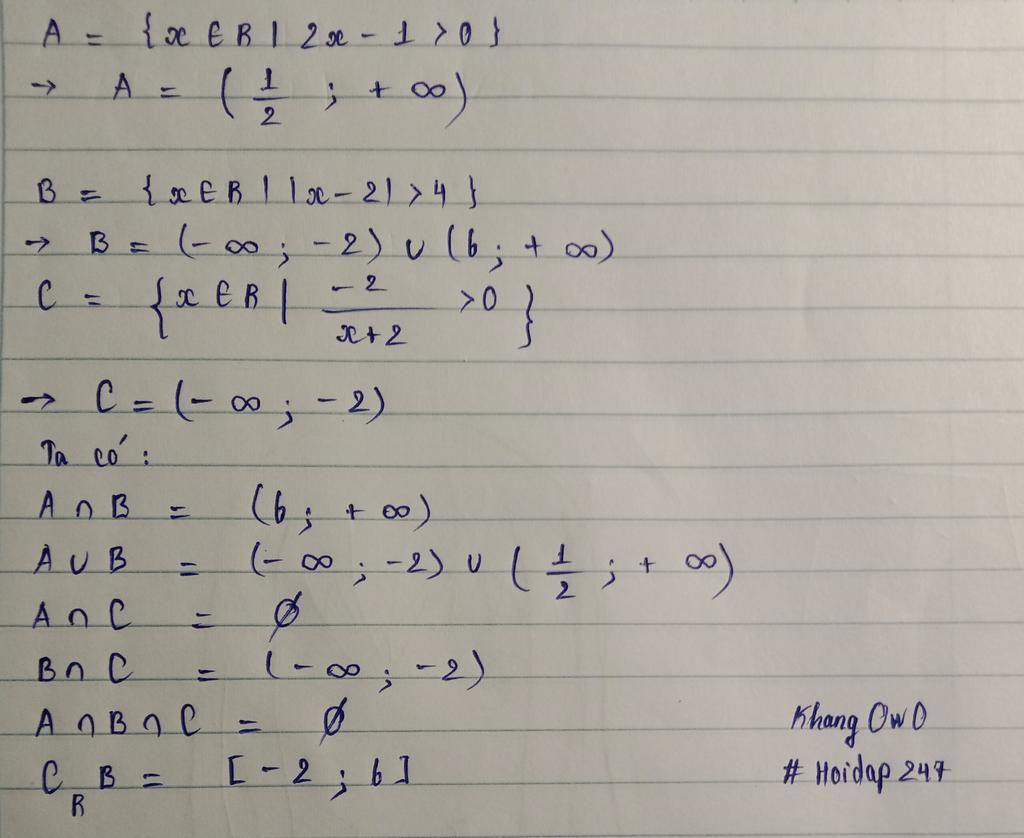 A = {x ∈ R | 2x - 1 > 0}
→ A = (1/2 ; + ∞)
B = {x ∈ R | |x - 2| > 4}
→ B = (- ∞ ; - 2) ∪ (6 ; + ∞)
C = {x ∈ R | -2/(x+2) > 0}
→ C = (- ∞ ; - 2)
Ta có :
A ∩ B = (6 ; + ∞)
A ∪ B = (- ∞ ; -2) ∪ (1/2 ; + ∞)
A ∩ C = ∅
B ∩ C = (- ∞ ; -2)
A ∩ B ∩ C = ∅
C_R B = [-2 ; 6]
Khang OwO
# Hoidap 247